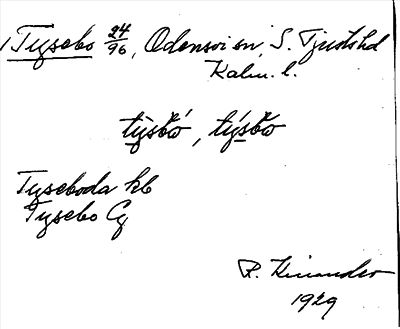 1 Tysebo 24/96, Odensvi sn, S. Tjusts hd
Kalm. l.
týsbo, týsbo
Tyseboda hb
Tysebo Cy
R. Kinander
1929